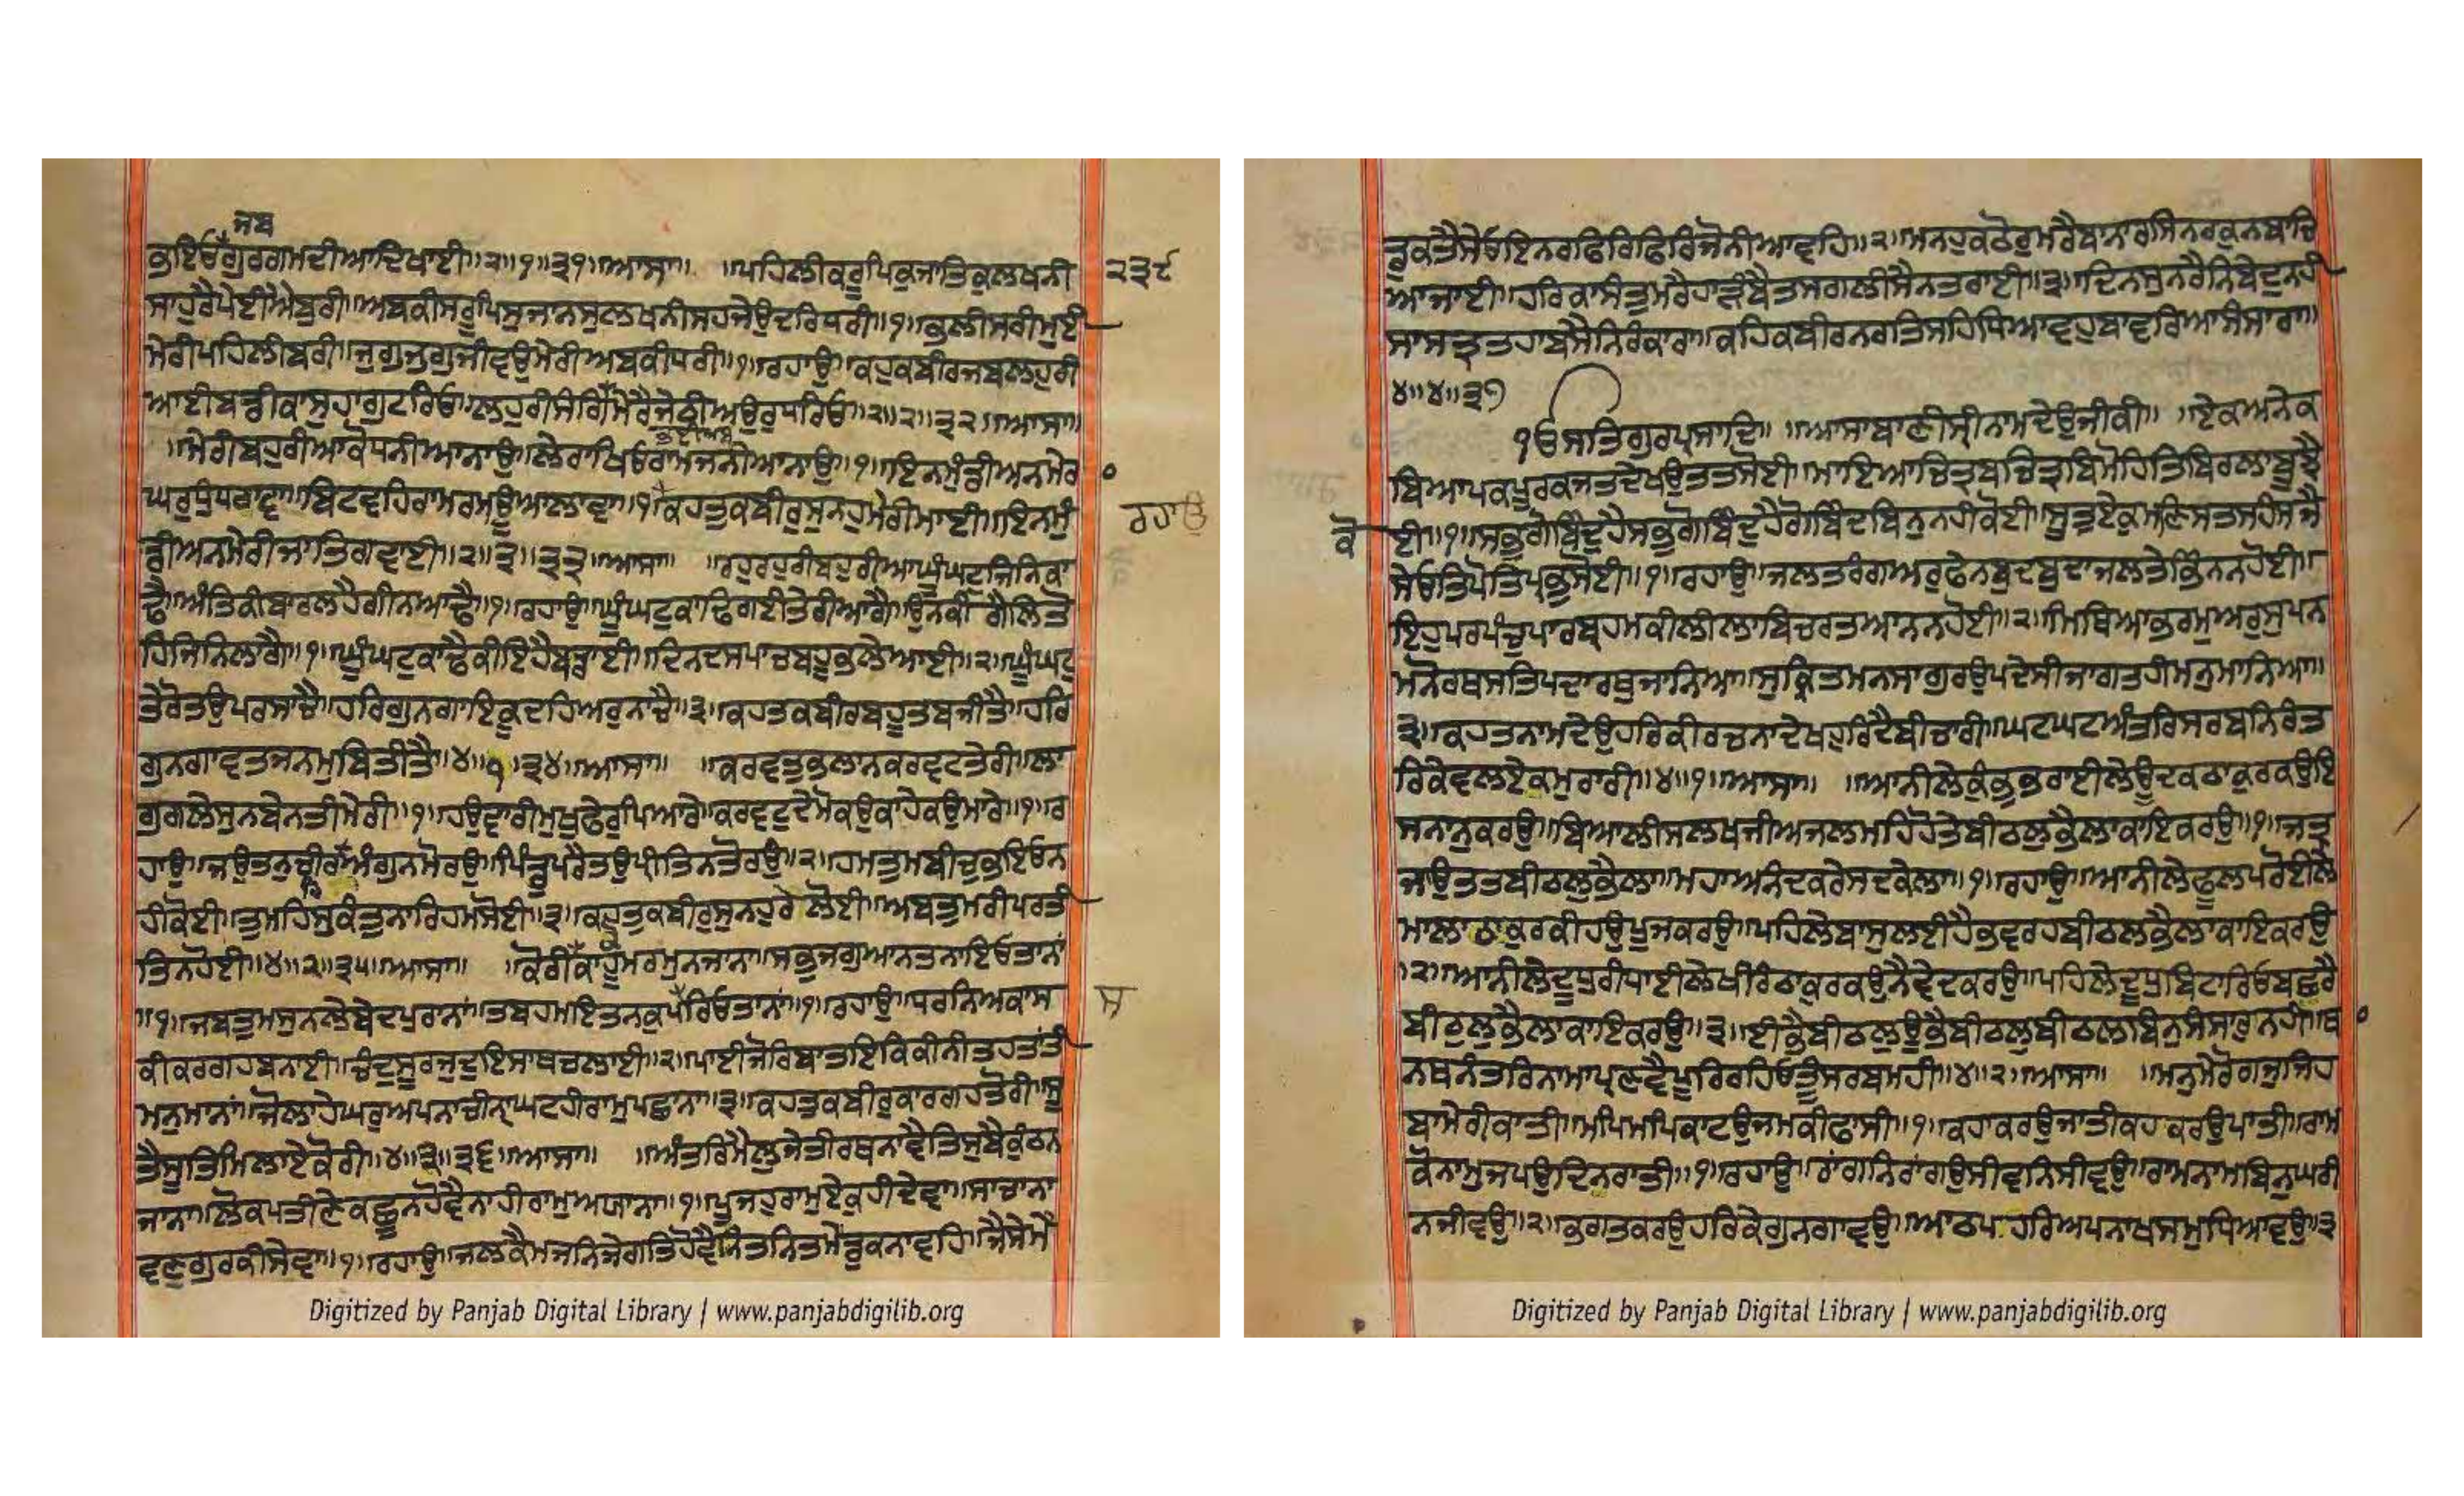 ਜਬ
ਭਇਓਗੁਰਗਮਦੀਆਦਿਖਾਈ॥੨॥੧॥੩੧॥ਆਸਾ॥ ॥ਪਹਿਲੀਕਰੂਪਿਕੁਜਾਤਿਕੁਲਖਨੀ ੨੩੮
ਸਾਹੁਰੈਪੇਈਐਬੁਰੀ॥ਅਬਕੀਸਰੂਪਿਸੁਜਾਨਸੁਲਖਨੀਸਹਜੇਉਦਰਿਧਰੀ॥੧॥ਭਲੀਸਰੀਮੁਈ
ਮੇਰੀਪਹਿਲੀਬਰੀ॥ਜੁਗੁਜੁਗੁਜੀਵਉਮੇਰੀਅਬਕੀਧਰੀ॥੧॥ਰਹਾਉ॥ਕਹੁਕਬੀਰਜਬਲਹੁਰੀ
ਆਈਬਡੀਕਾਸੁਹਾਗੁਟਰਿਓ॥ਲਹੁਰੀਸੰਗਿਮੇਰੈਜੇਠੀਅਉਰੁਧਰਿਓ॥੨॥੨॥੩੨॥ਆਸਾ॥
॥ਮੇਰੀਬਹੁਰੀਆਕੋਧਨੀਆਨਾਉ॥ਲੇਰਾਖਿਓਰਾਮਜਨੀਆਨਾਉ॥੧॥ਇਨਮੁੰਡੀਅਨਮੇਰ ੦
ਘਰੁਧੁੰਧਰਾਵਾ॥ਬਿਟਵਹਿਰਾਮਰਮਊਆਲਾਵਾ॥੧॥ਕਹਤੁਕਬੀਰੁਸੁਨਹੁਮੇਰੀਮਾਈ॥ਇਨਮੁੰ ਰਹਾਉ
ਡੀਅਨਮੇਰੀਜਾਤਿਗਵਾਈ॥੨॥੩॥੩੩॥ਆਸਾ॥ ॥ਰਹੁਰਹੁਰੀਬਹੁਰੀਆਘੂੰਘਟੁਜਿਨਿਕਾ
ਢੈ॥ਅੰਤਿਕੀਬਾਰਲਹੈਗੀਨਆਢੈ॥੧॥ਰਹਾਉ॥ਘੂੰਘਟੁਕਾਢਿਗਈਤੇਰੀਆਗੈ॥ਉਨਕੀਗੈਲਿਤੋ
ਹਿਜਿਨਿਲਾਗੈ॥੧॥ਘੂੰਘਟੁਕਾਢੈਕੀਇਹੈਬਡਾਈ॥ਦਿਨਦਸਪਾਚਬਹੂਭਲੇਆਈ॥੨॥ਘੂੰਘਟੁ
ਤੇਰੋਤਉਪਰਸਾਚੈ॥ਹਰਿਗੁਨਗਾਇਕੂਦਹਿਅਰੁਨਾਚੈ॥੩॥ਕਹਤਕਬੀਰਬਹੂਤਬਜੀਤੈ॥ਹਰਿ
ਗੁਨਗਾਵਤਜਨਮੁਬਿਤੀਤੈ॥੪॥੧॥੩੪॥ਆਸਾ॥ ॥ਕਰਵਤੁਭਲਾਨਕਰਵਟਤੇਰੀ॥ਲਾ
ਗੁਗਲੇਸੁਨਬੇਨਤੀਮੇਰੀ॥੧॥ਹਉਵਾਰੀਮੁਖੁਫੇਰੁਪਿਆਰੇ॥ਕਰਵਟੁਦੇਮੋਕਉਕਾਹੇਕਉਮਾਰੇ॥੧॥ਰ
ਹਾਉ॥ਜਉਤਨੁਚੀਰਅੰਗੁਨਮੋਰਉ॥ਪਿੰਡੁਪਰੈਤਉਪ੍ਰੀਤਿਨਤੋਰਉ॥੨॥ਹਮਤੁਮਬੀਚੁਭਇਓਨ
ਹੀਕੋਈ॥ਤੁਮਹਿਸੁਕੰਤੁਨਾਰਿਹਮਸੋਈ॥੩॥ਕਹਤੁਕਬੀਰੁਸੁਨਹੁਰੇਲੋਈ॥ਅਬਤੁਮਰੀਪਰਤੀ
ਤਿਨਹੋਈ॥੪॥੨॥੩੫॥ਆਸਾ॥ ॥ਕੋਰੀਕਾਹੂਮਰਮੁਨਜਾਨਾ॥ਸਭੁਜਗੁਆਨਤਨਾਇਓਤਾਨਾਂ
॥੧॥ਜਬਤੁਮਸੁਨਲੇਬੇਦਪੁਰਾਨਾਂ॥ਤਬਹਮਇਤਨਕੁਪੰਰਿਓਤਾਨਾਂ॥੧॥ਰਹਾਉ॥ਧਰਨਿਅਕਾਸ ਸ
ਕੀਕਰਗਹਬਨਾਈ॥ਚੰਦੁਸੂਰਜੁਦੁਇਸਾਥਚਲਾਈ॥੨॥ਪਾਈਜੋਰਿਬਾਤਇਕਿਕੀਨੀਤਹਤਾਂਤੀ
ਮਨੁਮਾਨਾਂ॥ਜੋਲਾਹੇਘਰੁਅਪਨਾਚੀਨਾ੍ਘਟਹੀਰਾਮੁਪਛਾਨਾ॥੩॥ਕਹਤੁਕਬੀਰੁਕਾਰਗਹਤੋਰੀ॥ਸੂ
ਤੈਸੂਤਿਮਿਲਾਏਕੋਰੀ॥੪॥੩॥੩੬॥ਆਸਾ॥ ॥ਅੰਤਰਿਮੈਲੁਜੇਤੀਰਥਨਾਵੈਤਿਸੁਬੈਕੁੰਠਨ
ਜਾਨਾ॥ਲੋਕਪਤੀਣੇਕਛੂਨਹੋਵੈਨਾਹੀਰਾਮੁਅਯਾਨਾ॥੧॥ਪੂਜਹੁਰਾਮੁਏਕੁਹੀਦੇਵਾ॥ਸਾਚਾਨਾ
ਵਣੁਗੁਰਕੀਸੇਵਾ॥੧॥ਰਹਾਉ॥ਜਲਕੈਮਜਨਿਜੇਗਤਿਹੋਵੈਨਿਤਨਿਤਮੇਂਡੁਕਨਾਵਹਿ॥ਜੈਸੇਮੇਂ
Digitized by Panjab Digital Library | www.panjabdigilib.org
ਡੁਕਤੈਸੇਓਇਨਰਫਿਰਿਫਿਰਿਜੋਨੀਆਵਹਿ॥੨॥ਮਨਹੁਕਠੋਰੁਮਰੈਬਾਨਾਰਸਿਨਰਕੁਨਬਾਚਿ
ਆਜਾਈ॥ਹਰਿਕਾਸੰਤੁਮਰੈਹਾੜੰਬੈਤਸਗਲੀਸੈਨਤਰਾਈ॥੩॥ਦਿਨਸੁਨਰੈਨਿਬੇਦੁਨਹੀ
ਸਾਸਤ੍ਰਤਹਾਬਸੈਨਿਰੰਕਾਰਾ॥ਕਹਿਕਬੀਰਨਰਤਿਸਹਿਧਿਆਵਹੁਬਾਵਰਿਆਸੰਸਾਰਾ॥
੪॥੪॥੩੭
੧ੳਸਤਿਗੁਰਪ੍ਰਸਾਦਿ॥ ॥ਆਸਾਬਾਣੀਸ੍ਰੀਨਾਮਦੇਉਜੀਕੀ॥ ॥ਏਕਅਨੇਕ
ਬਿਆਪਕਪੂਰਕਜਤਦੇਖਉਤਤਸੋਈ॥ਮਾਇਆਚਿਤ੍ਰਬਚਿਤ੍ਰਬਿਮੋਹਿਤਿਬਿਰਲਾਬੂਝੈ
ਕੋ ਈ॥੧॥ਸਭੁਗੋਬਿੰਦੁਹੈਸਭੁਗੋਬਿੰਦੁਹੈਗੋਬਿੰਦਬਿਨੁਨਹੀਕੋਈ॥ਸੂਤੁਏਕੁਮਣਿਸਤਸਹੰਸਜੈ
ਸੇਓਤਿਪੋਤਿਪ੍ਰਭੁਸੋਈ॥੧॥ਰਹਾਉ॥ਜਲਤਰੰਗਅਰੁਫੇਨਬੁਦਬੁਦਾਜਲਤੇਭਿੰਨਨਹੋਈ॥
ਇਹੁਪਰਪੰਚੁਪਾਰਬ੍ਰਹਮਕੀਲੀਲਾਬਿਚਰਤਆਨਨਹੋਈ॥੨॥ਮਿਥਿਆਭਰਮੁਅਰੁਸੁਪਨ
ਮਨੋਰਥਸਤਿਪਦਾਰਥੁਜਾਨਿਆ॥ਸੁਕ੍ਰਿਤਮਨਸਾਗੁਰਉਪਦੇਸੀਜਾਗਤਹੀਮਨੁਮਾਨਿਆ॥
੩॥ਕਹਤਨਾਮਦੇਉਹਰਿਕੀਰਚਨਾਦੇਖਹੁਰਿਦੈਬੀਚਾਰੀ॥ਘਟਘਟਅੰਤਰਿਸਰਬਨਿਰੰਤ
ਰਿਕੇਵਲਏਕਮੁਰਾਰੀ॥੪॥੧॥ਆਸਾ॥ ॥ਆਨੀਲੇਕੁੰਭੁਭਰਾਈਲੇਊਦਕਠਾਕੁਰਕਉਇ
ਸਨਾਨੁਕਰਉ॥ਬਿਆਲੀਸਲਖਜੀਅਜਲਮਹਿਹੋਤੇਬੀਠਲੁਭੈਲਾਕਾਇਕਰਉ॥੧॥ਜਤ੍ਰ
ਜਾਉਤਤਬੀਠਲੁਭੈਲਾ॥ਮਹਾਅਨੰਦਕਰੇਸਦਕੇਲਾ॥੧॥ਰਹਾਉ॥ਆਨੀਲੇਫੂਲਪਰੋਈਲੇ
ਮਾਲਾਠਾਕੁਰਕੀਹਉਪੂਜਕਰਉ॥ਪਹਿਲੇਬਾਸੁਲਈਹੈਭਵਰਹਬੀਠਲਭੈਲਾਕਾਇਕਰਉ
॥੨॥ਆਨੀਲੇਦੂਧੁਰੀਧਾਈਲੇਖੀਰੰਠਾਕੁਰਕਉਨੈਵੇਦਕਰਉ॥ਪਹਿਲੇਦੂਧੁਬਿਟਾਰਿਓਬਛਰੈ
ਬੀਠਲੁਭੈਲਾਕਾਇਕਰਉ॥੩॥ਈਭੈਬੀਠਲੁਊਭੈਬੀਠਲੁਬੀਠਲਬਿਨੁਸੰਸਾਰੁਨਹੀ॥ਥ ੦
ਨਥਨੰਤਰਿਨਾਮਾਪ੍ਰਣਵੈਪੂਰਿਰਹਿਓਤੂੰਸਰਬਮਹੀ॥੪॥੨॥ਆਸਾ॥ ॥ਮਨੁਮੇਰੋਗਜੁਜਿਹ
ਬਾਮੇਰੀਕਾਤੀ॥ਮਪਿਮਪਿਕਾਟਉਜਮਕੀਫਾਸੀ॥੧॥ਕਹਾਕਰਉਜਾਤੀਕਹਕਰਉਪਾਤੀ॥ਰਾਮ
ਕੋਨਾਮੁਜਪਉਦਿਨਰਾਤੀ॥੧॥ਰਹਾਉ॥ਰਾਂਗਨਿਰਾਂਗਉਸੀਵਨਿਸੀਵਉ॥ਰਾਮਨਾਮਬਿਨੁਘਰੀ
ਨਜੀਵਉ॥੨॥ਭਗਤਕਰਉਹਰਿਕੇਗੁਨਗਾਵਉ॥ਆਠਪਹਰਿਅਪਨਾਖਸਮੁਧਿਆਵਉ॥੩
Digitized by Panjab Digital Library | www.panjabdigilib.org